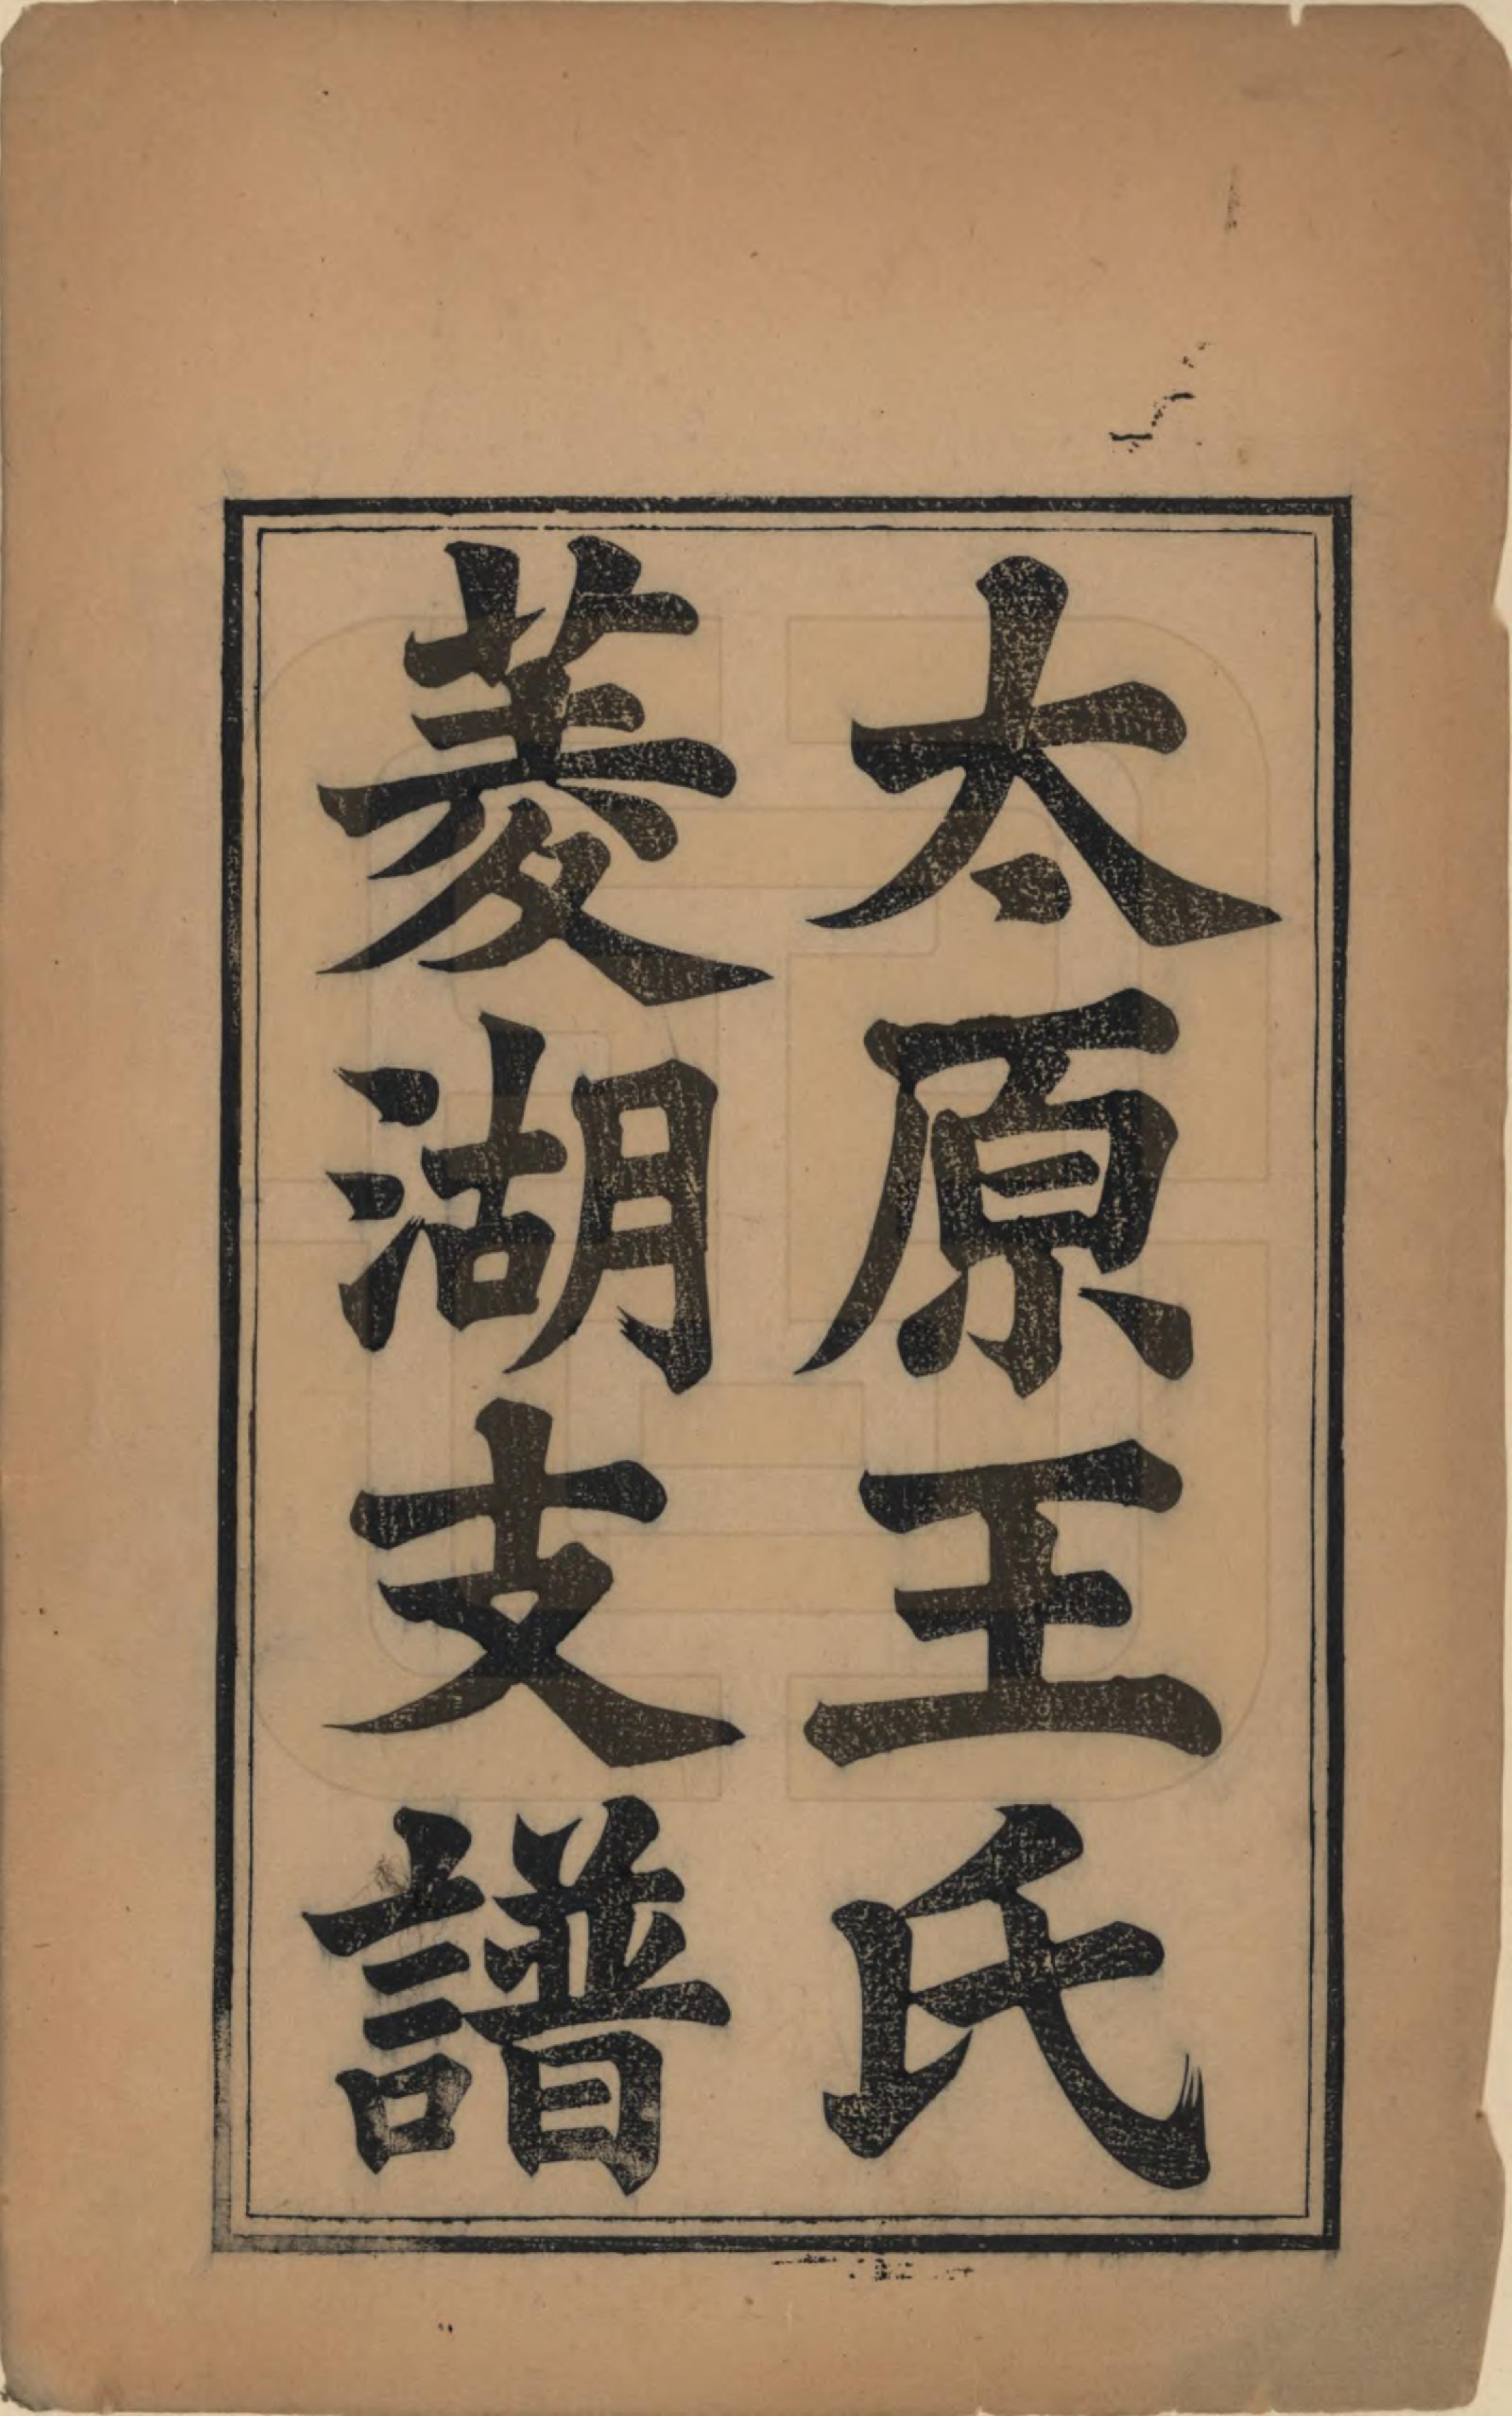 太原王氏
菱湖支譜